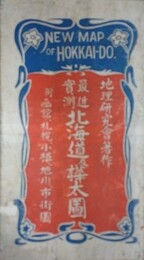 NEW MAP
OF
HOKKAI-DO.
地理研究會著作
最近
實測
北海道樺太圖
附函館、札幌、小樽、旭川市街圖